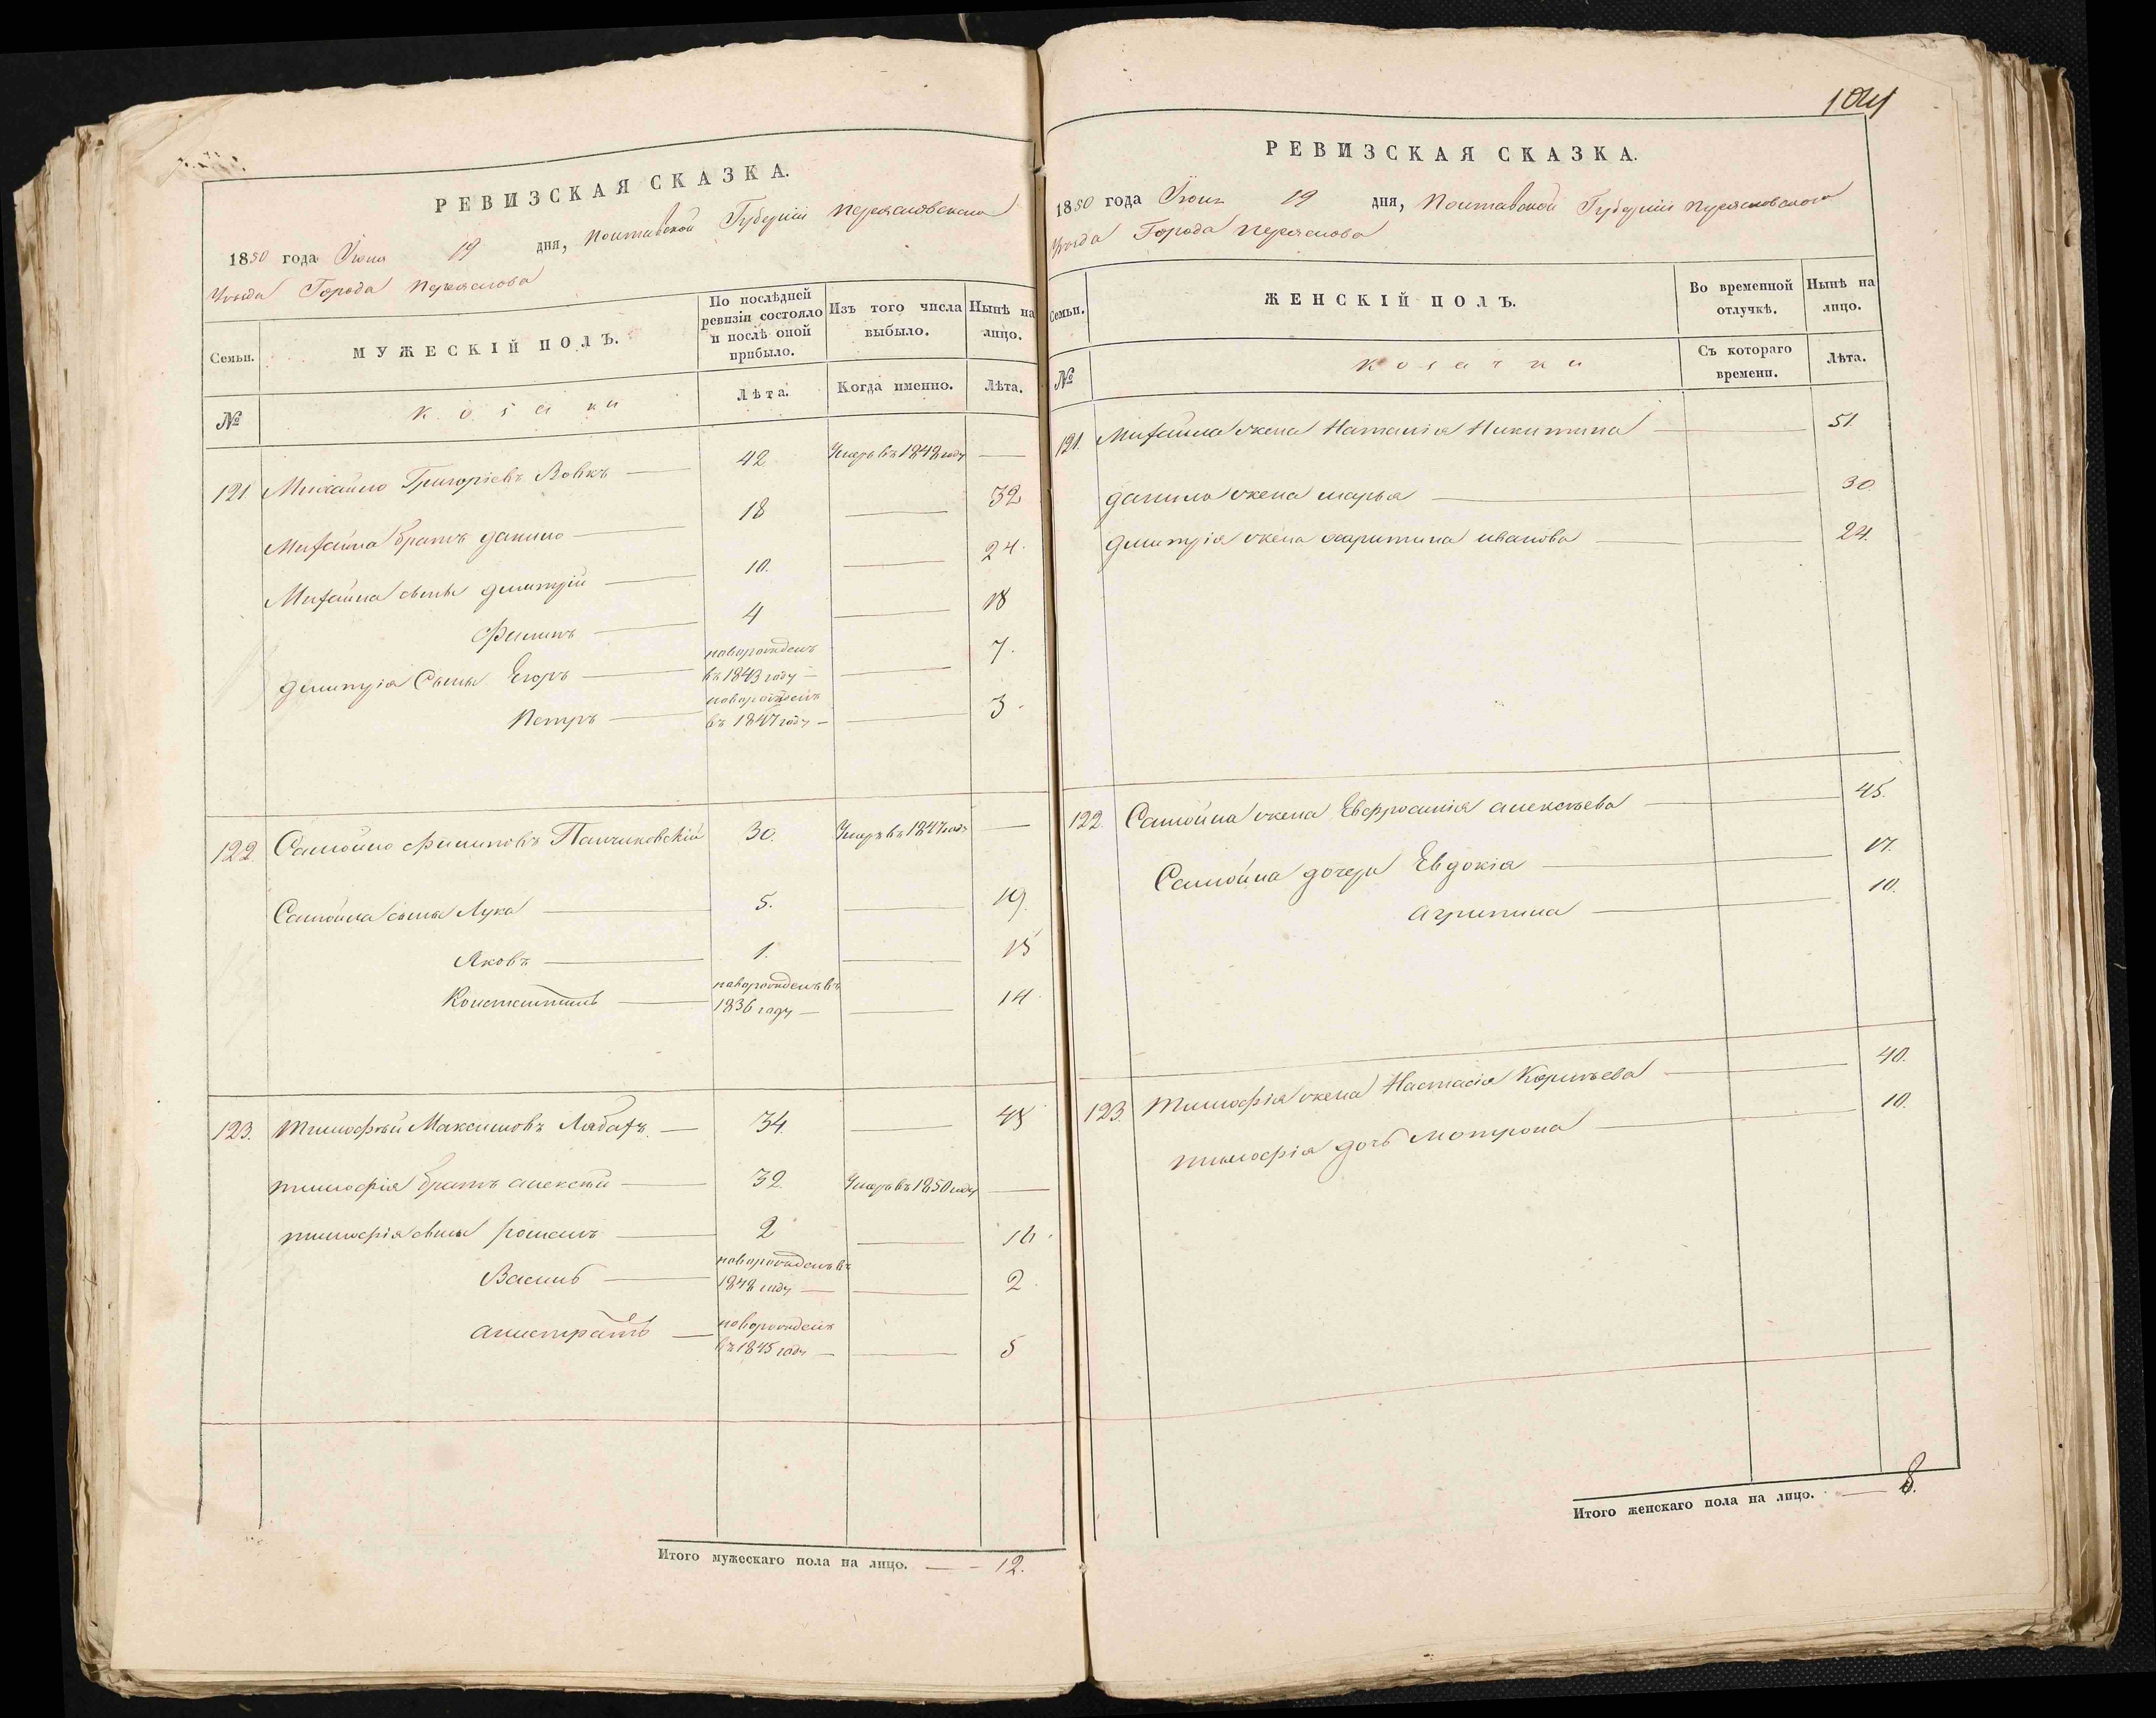 РЕВИЗСКАЯ СКАЗКА.
1850 года Іюня 19 дня, Полтавской Губерніи Переяславскаго
Уѣзда Города Переяслова
Семьи. МУЖЕСКІЙ ПОЛЪ. По послѣдней ревизіи состояло и послѣ оной прибыло. Изъ того числа выбыло. Нынѣ на лицо.
№ козаки Лѣта. Когда именно. Лѣта.
121 Михайло Григоріевъ Вовкъ — 42 Умеръ въ 1848 году —
Михайла братъ данило — 18 — 32
Михайла сынъ дмитрій — 10. — 24.
Филипъ — 4 — 18
дмитрія Сынъ Егоръ — новорожденъ въ 1843 году — — 7.
Петръ — новорожденъ въ 1847 году — — 3.
122. Самойло Филиповъ Панчиковскій 30. Умеръ въ 1847 году —
Самойла сынъ Лука — 5. — 19.
Яковъ — 1. — 15
Константинъ — новорожденъ въ 1836 году — — 14.
123. тимофѣй Максимовъ Лябахъ — 34. — 48
тимофія братъ алексѣй — 32. Умеръ въ 1850 году —
тимофія сынъ романъ — 2 — 16.
Василь — новорожденъ въ 1848 году — — 2.
анистратъ — новорожденъ въ 1845 году — — 5
Итого мужескаго пола на лицо. — 12.
104
РЕВИЗСКАЯ СКАЗКА.
1850 года Іюня 19 дня, Полтавской Губерніи Переясловскаго
Уѣзда Города Переяслова
Семьи. ЖЕНСКІЙ ПОЛЪ. Во временной отлучкѣ. Нынѣ на лицо.
№ козачки Съ котораго времени. Лѣта.
121. Михайла жена Наталія Никитина — 51.
данила жена марья — 30.
дмитрія жена харитина иванова — — 24.
122. Самойла жена Евфросинія алексѣева — 45.
Самойла дочери Евдокія — 17.
агрипина — 10.
123. тимофія жена Настасія Корнѣева — 40.
тимофія дочь мотрона — 10.
Итого женскаго пола на лицо. — 8.